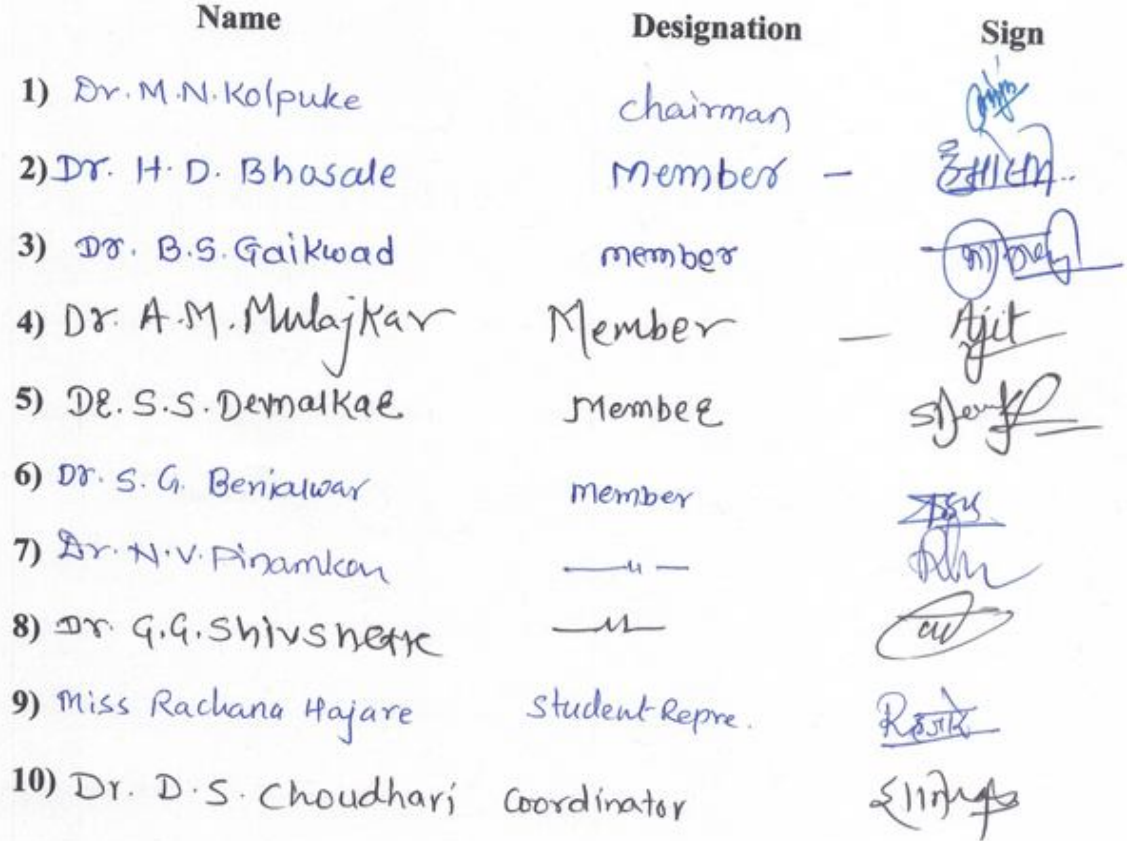 Name Designation Sign
1) Dr. M.N. Kolpuke chairman
2) Dr. H. D. Bhosale Member -
3) Dr. B.S. Gaikwad member
4) Dr. A.M. Mulajkar Member - Ajit
5) Dr. S.S. Devnalkar Member
6) Dr. S. G. Benjalwar member
7) Dr. N.V. Pinamkar —〃—
8) Dr. G.G. Shivshette —〃—
9) Miss Rachana Hajare Student Repre. R हजारे
10) Dr. D.S. Choudhari Coordinator